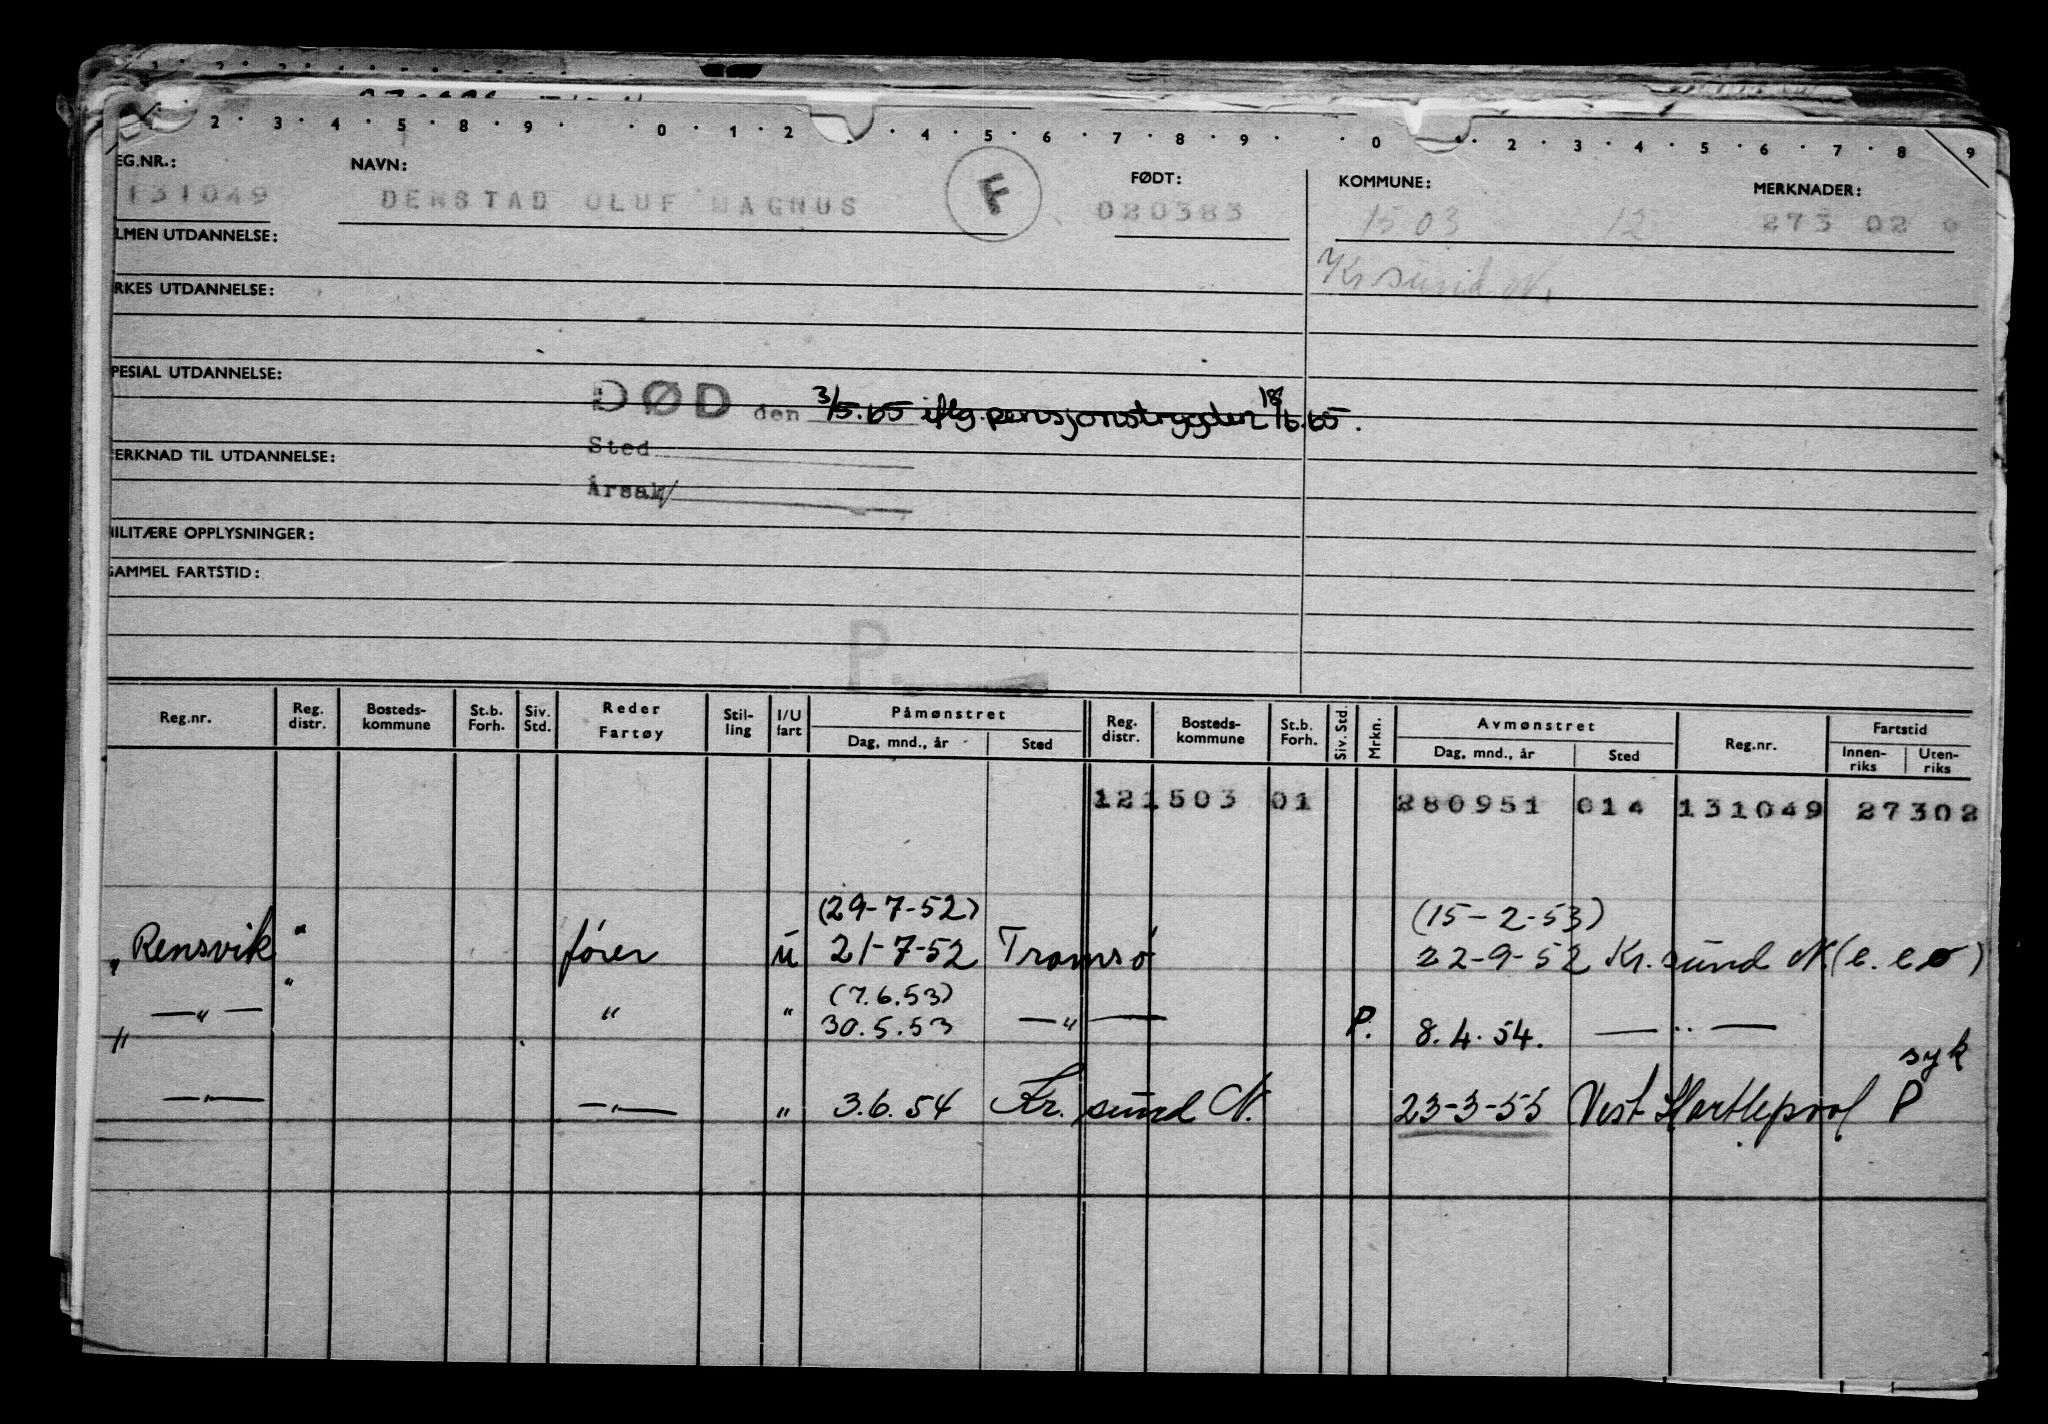 2 · 3 · 4 · 5 · 8 · 9 · · 0 · 1 · 2 · 4 · 5 · 6 · 7 · 8 · 9 · · 0 · 2 · 3 · 4 · 5 · 6 · 7 · 8 · 9
EG.NR.: NAVN: F FØDT: KOMMUNE: MERKNADER:
131049 DENSTAD OLUF MAGNUS 020383 1503 12 273 02 0
LMEN UTDANNELSE:
Kr sund N.
RKES UTDANNELSE:
PESIAL UTDANNELSE:
DØD den 3/5.65 iflg. pensjonstrygden 18/6.65.
Sted
ERKNAD TIL UTDANNELSE:
Årsak/
MILITÆRE OPPLYSNINGER:
GAMMEL FARTSTID:
P.
Reg.nr. Reg. distr. Bosteds-kommune St.b. Forh. Siv. Std. Reder Fartøy Stil-ling I/U fart Påmønstret Dag, mnd., år Sted Reg. distr. Bosteds-kommune St.b. Forh. Siv. Std. Mrkn. Avmønstret Dag, mnd., år Sted Reg.nr. Fartstid Innen-riks Uten-riks
121503 01 280951 014 131049 27302
(29-7-52) (15-2-53)
" Rensvik " fører u 21-7-52 Tromsø 22-9-52 Kr. sund N. (e. e o)
" (7.6.53)
" —"— " " 30.5.53 —"— P. 8.4.54. —"—
syk
—"— —"— " 3.6.54 Kr. sund N. 23-3-55 Vest Hartlepool P